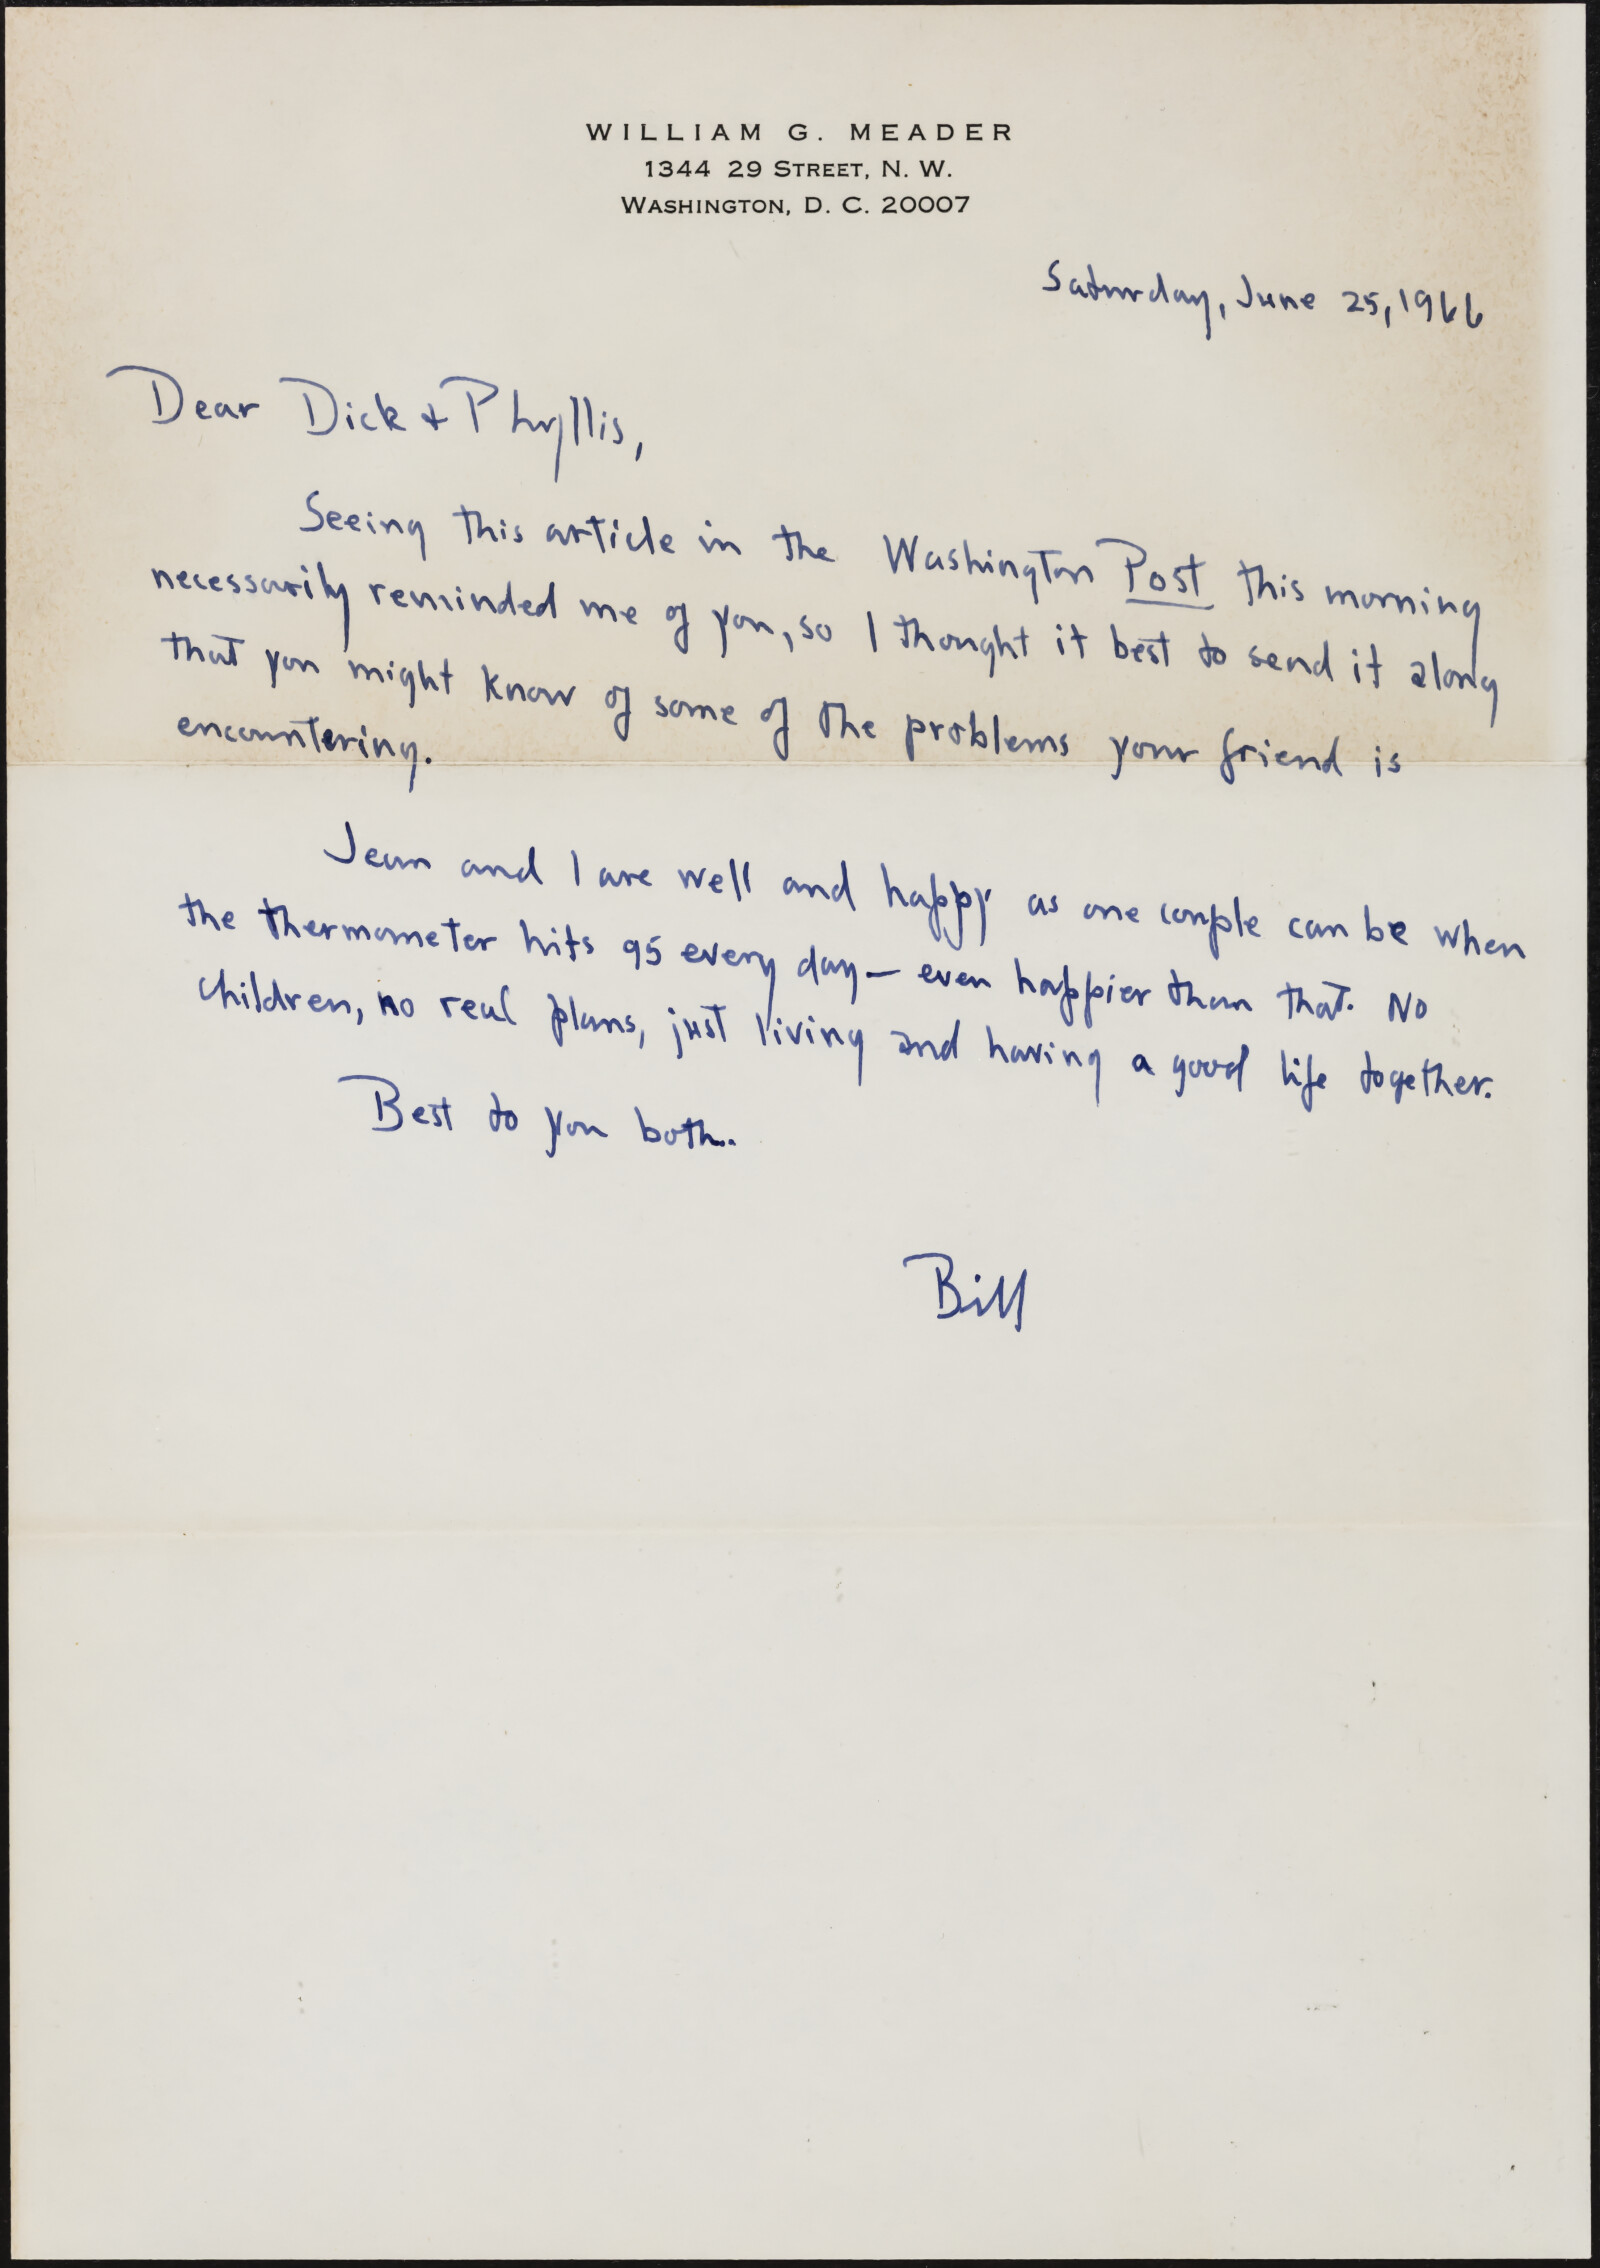 WILLIAM G. MEADER
1344 29 STREET, N. W.
WASHINGTON, D. C. 20007
Saturday, June 25, 1966
Dear Dick + Phyllis,
Seeing this article in the Washington Post this morning
necessarily reminded me of you, so I thought it best to send it along
that you might know of some of the problems your friend is
encountering.
Jean and I are well and happy as one couple can be when
the thermometer hits 95 every day — even happier than that. No
children, no real plans, just living and having a good life together.
Best to you both..
Bill